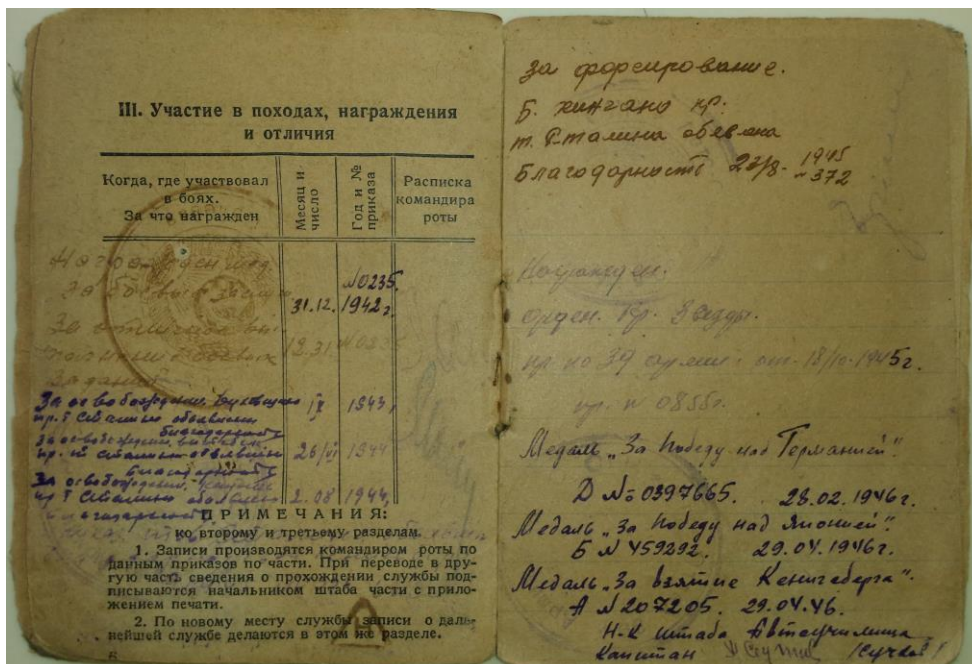 III. Участие в походах, награждения
и отличия
Когда, где участвовал
в боях.
За что награжден
Месяц и
число
Год и №
приказа
Расписка
командира
роты
31.12.
№0235.
1942 г.
За отличное
12.31. №0235
боевых
заданий
За освобождение
пр. т Сталина объявлена
благодарность
IX 1943
За освобождение
26/VI 1944
благодарность
За освобождение
пр. т Сталина объявлена
2.08 1944
ПРИМЕЧАНИЯ:
ко второму и третьему разделам.
1. Записи производятся командиром роты по
данным приказов по части. При переводе в дру-
гую часть сведения о прохождении службы под-
писываются начальником штаба части с прило-
жением печати.
2. По новому месту службы записи о даль-
нейшей службе делаются в этом же разделе.
6
за форсирование.
Б. хингано пр.
т. Сталина обевлена
Благодарность 23/8. 1945
№372
Награжден.
орден. Кр. Звезды.
пр по 39 армии от. 18/10-1945г.
пр. № 0855г.
Медаль „За Победу над Германией".
D №0397665. 28.02.1946г.
Медаль „За Победу над Японией"
Б № 459292. 29.04.1946г.
Медаль „За взятие Кенигсберга".
А №207205. 29.04.46.
Н-к штаба Автоучилища
Капитан